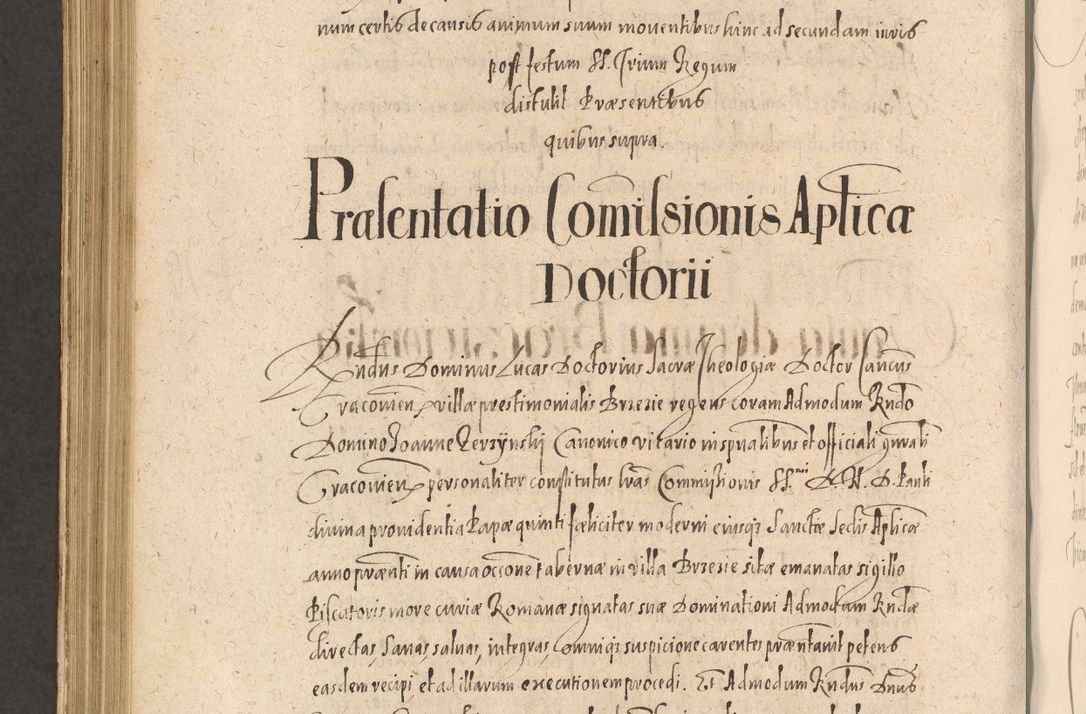 num certis de causis animum suum moventibus hinc ad secundam iuris
post festum SS. Trium Regum
distulit Præsentibus
quibus supra.
Præsentatio Com̃issionis Aplicæ
Doctorii
Rndus Dominus Lucas Doctorius Sacræ Theologiæ Doctor Cancus
Cracovien villæ prestimonialis Brzezie regens coram Admodum Rndo
Domino Joanne Zerzÿnski Canonico vicario in spualibus et officiali gnrali
Cracovien personaliter constitutus lras Commissionis SS.mi D. N. D. Pauli
divina providentia Papæ quinti fæliciter moderni eiusq; Sanctæ Sedis Aplicæ
anno prænti in causa occone tabernæ in villa Brzezie sitæ emanatas sigillo
Piscatoris more curiæ Romanæ signatas suæ Dominationi Admodum Rndæ
directas, Sanas, salvas, integras, omniq; suspicione carentes præntavit petens
easdem recipi et ad illarum executionem procedi. Et Admodum Rndus Dnus